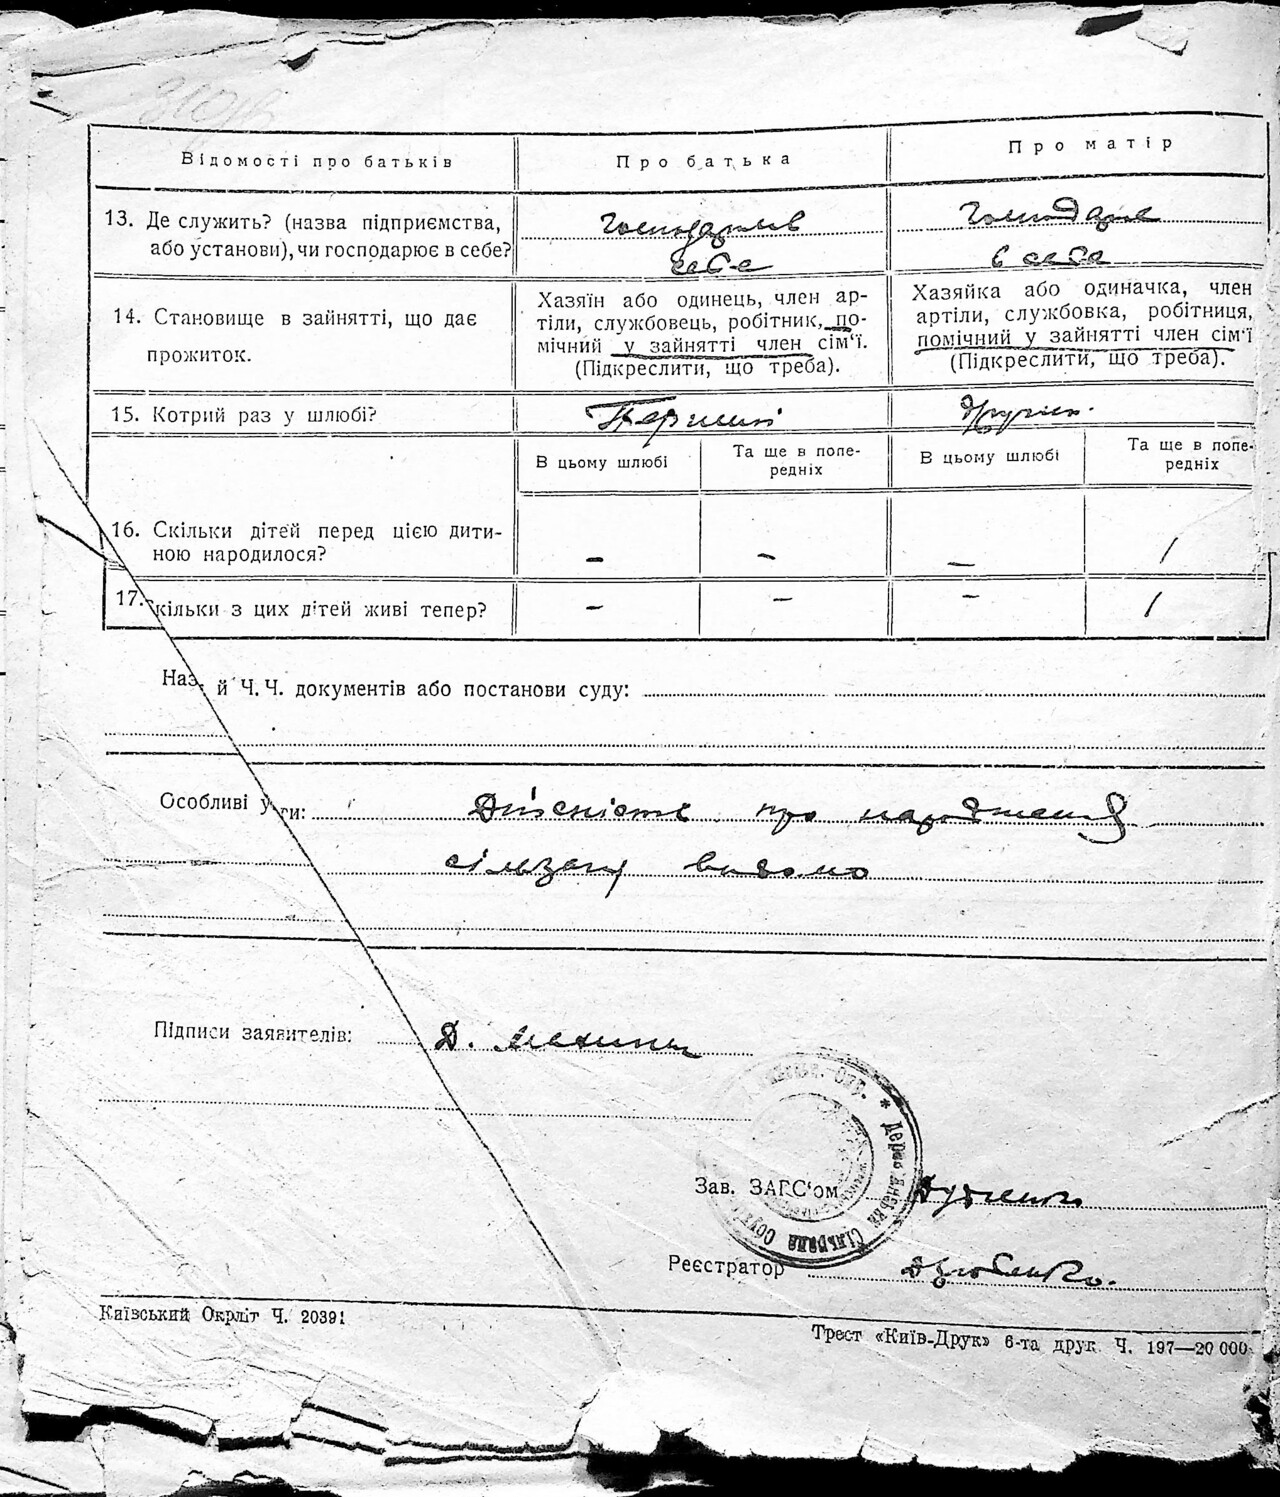 Відомості про батьків
Про батька
Про матір
13. Де служить? (назва підприємства,
або установи), чи господарює в себе?
Господарює в
себе
Господарює
в себе
14. Становище в зайнятті, що дає
прожиток.
Хазяїн або одинець, член ар-
тіли, службовець, робітник, по-
мічний у зайнятті член сім'ї.
(Підкреслити, що треба).
Хазяйка або одиначка, член
артіли, службовка, робітниця,
помічний у зайнятті член сім'ї
(Підкреслити, що треба).
15. Котрий раз у шлюбі?
Перший
другий.
В цьому шлюбі
Та ще в попе-
редніх
В цьому шлюбі
Та ще в попе-
редніх
16. Скільки дітей перед цією дити-
ною народилося?
– – – 1
17. кільки з цих дітей живі тепер?
– – – 1
Наз. й Ч. Ч. документів або постанови суду:
Особливі у ги: Дійсність про народження
відомо
Підписи заявителів: Д.
Зав. ЗАГС'ом
Сільрада
Реєстратор Дзюбенко.
Київський Окрліт Ч. 20391
Трест «Київ-Друк» 6-та друк Ч. 197—20 000